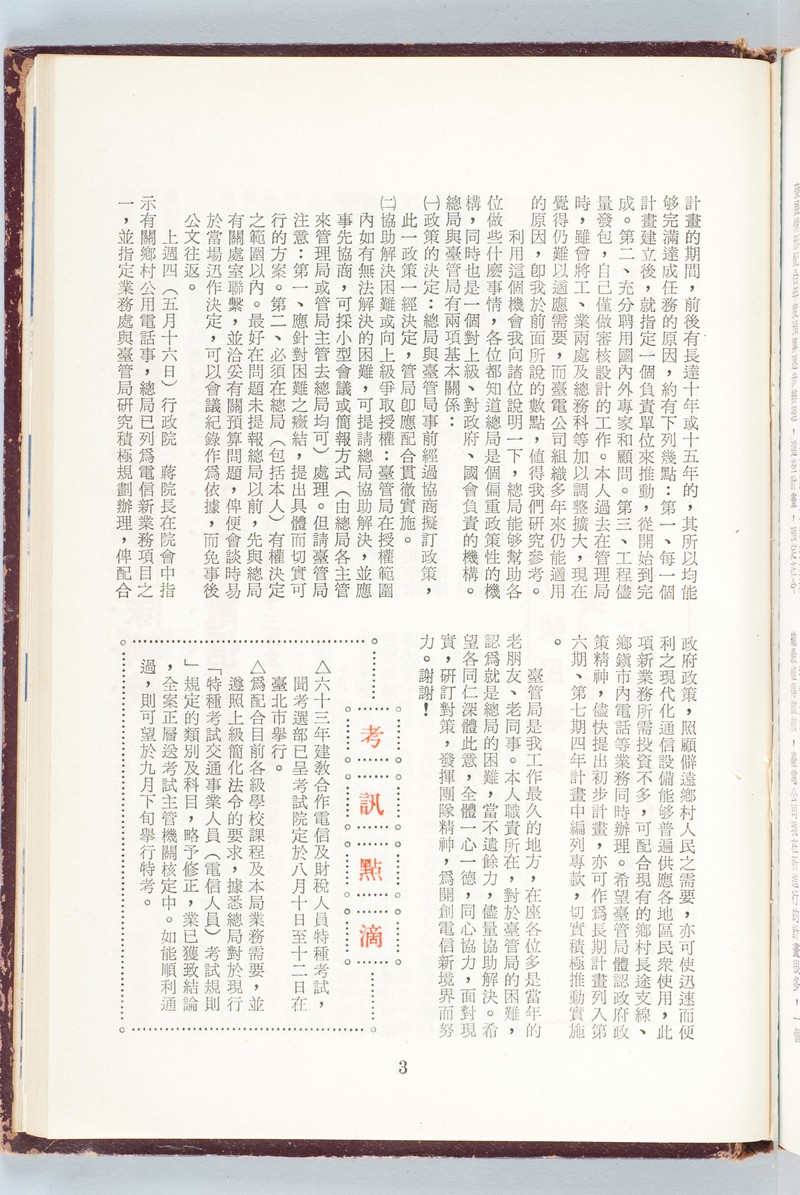 計畫的期間，前後有長達十年或十五年的，其所以均能
够完滿達成任務的原因，約有下列幾點：第一、每一個
計畫建立後，就指定一個負責單位來推動，從開始到完
成。第二、充分聘用國內外專家和顧問。第三、工程儘
量發包，自己僅做審核設計的工作。本人過去在管理局
時，雖曾將工、業兩處及總務科等加以調整擴大，現在
覺得仍難以適應需要，而臺電公司組織多年來仍能適用
的原因，卽我於前面所說的數點，値得我們硏究參考。
利用這個機會我向諸位說明一下，總局能够幫助各
位做些什麼事情，各位都知道總局是個偏重政策性的機
構，同時也是一個對上級、對政府、國會負責的機構。
總局與臺管局有兩項基本關係：
㈠政策的決定：總局與臺管局事前經過協商擬訂政策，
此一政策一經決定，管局卽應配合貫徹實施。
㈡協助解決困難或向上級爭取授權：臺管局在授權範圍
內如有無法解決的困難，可提請總局協助解決，並應
事先協商，可採小型會議或簡報方式（由總局各主管
來管理局或管局主管去總局均可）處理。但請臺管局
注意：第一、應針對困難之癥結，提出具體而切實可
行的方案。第二、必須在總局（包括本人）有權決定
之範圍以內。最好在問題未提報總局以前，先與總局
有關處室聯繫，並洽妥有關預算問題，俾便會談時易
於當場迅作決定，可以會議紀錄作爲依據，而免事後
公文往返。
上週四（五月十六日）行政院　蔣院長在院會中指
示有關鄉村公用電話事，總局已列爲電信新業務項目之
一，並指定業務處與臺管局硏究積極規劃辦理，俾配合
政府政策，照顧僻遠鄉村人民之需要，亦可使迅速而便
利之現代化通信設備能够普遍供應各地區民衆使用，此
項新業務所需投資不多，可配合現有的鄉村長途支線、
鄉鎭市內電話等業務同時辦理。希望臺管局體認政府政
策精神，儘快提出初步計畫，亦可作爲長期計畫列入第
六期、第七期四年計畫中編列專款，切實積極推動實施
。
臺管局是我工作最久的地方，在座各位多是當年的
老朋友、老同事。本人職責所在，對於臺管局的困難，
認爲就是總局的困難，當不遺餘力，儘量協助解決。希
望各同仁深體此意，全體一心一德，同心協力，面對現
實，硏訂對策，發揮團隊精神，爲開創電信新境界而努
力。謝謝！
考訊點滴
△六十三年建敎合作電信及財稅人員特種考試，
聞考選部已呈考試院定於八月十日至十二日在
臺北市舉行。
△爲配合目前各級學校課程及本局業務需要，並
遵照上級簡化法令的要求，據悉總局對於現行
「特種考試交通事業人員（電信人員）考試規則
」規定的類別及科目，略予修正，業已獲致結論
，全案正層送考試主管機關核定中。如能順利通
過，則可望於九月下旬舉行特考。
3